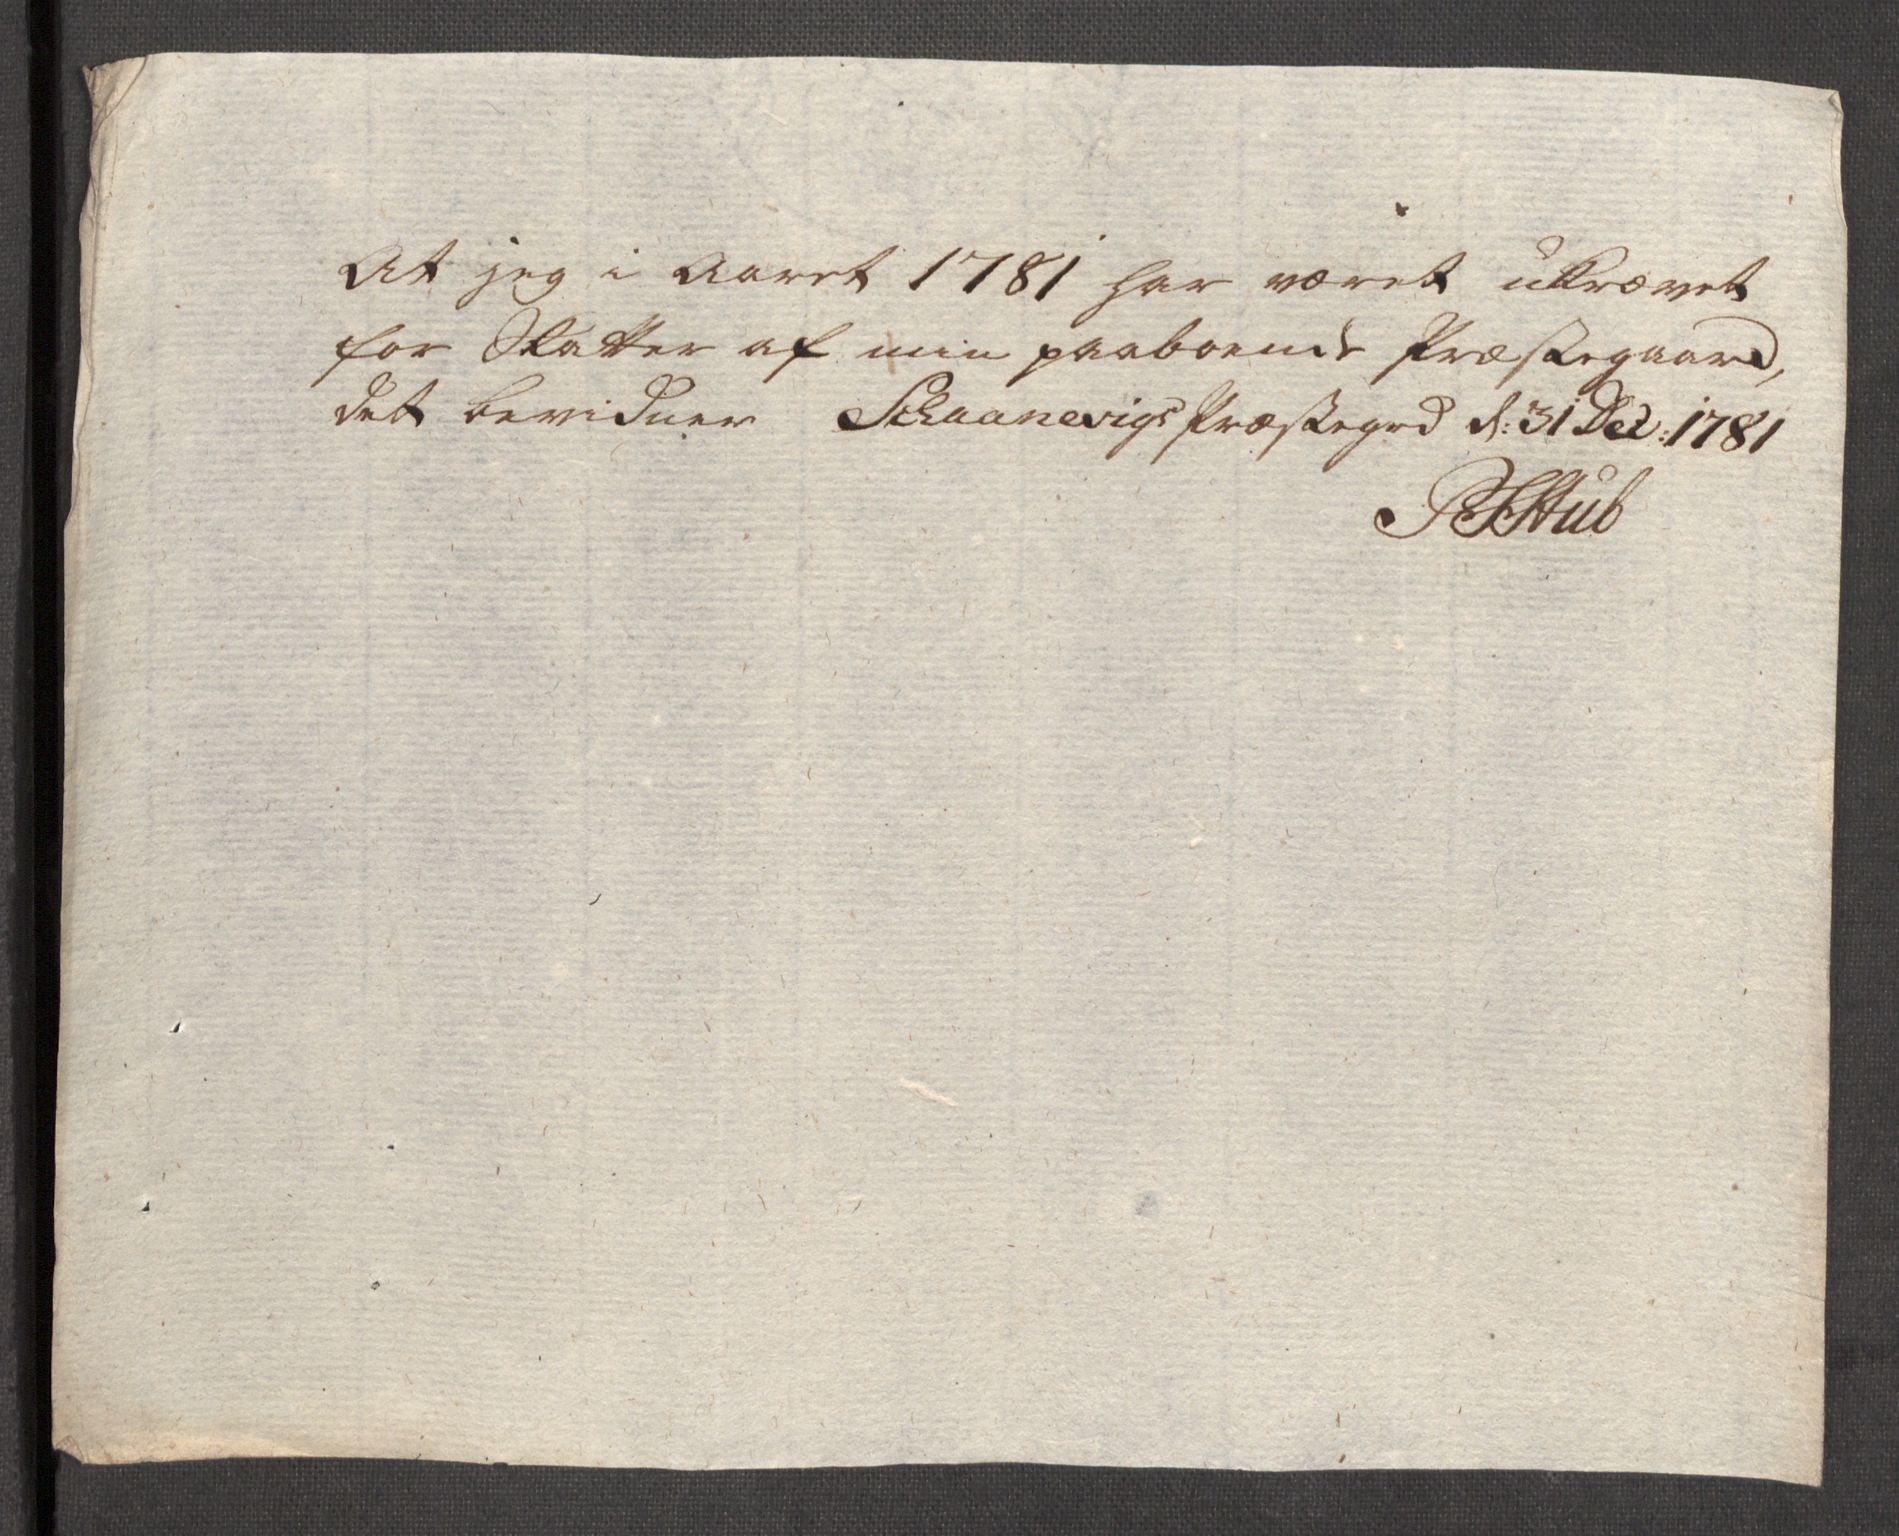 At jeg i Aaret 1781 har været ukrævet
for Skatter af min paaboende Præstegaard,
det bevidner Schaanevigs Præstegrd d: 31 Dec: 1781
Stub